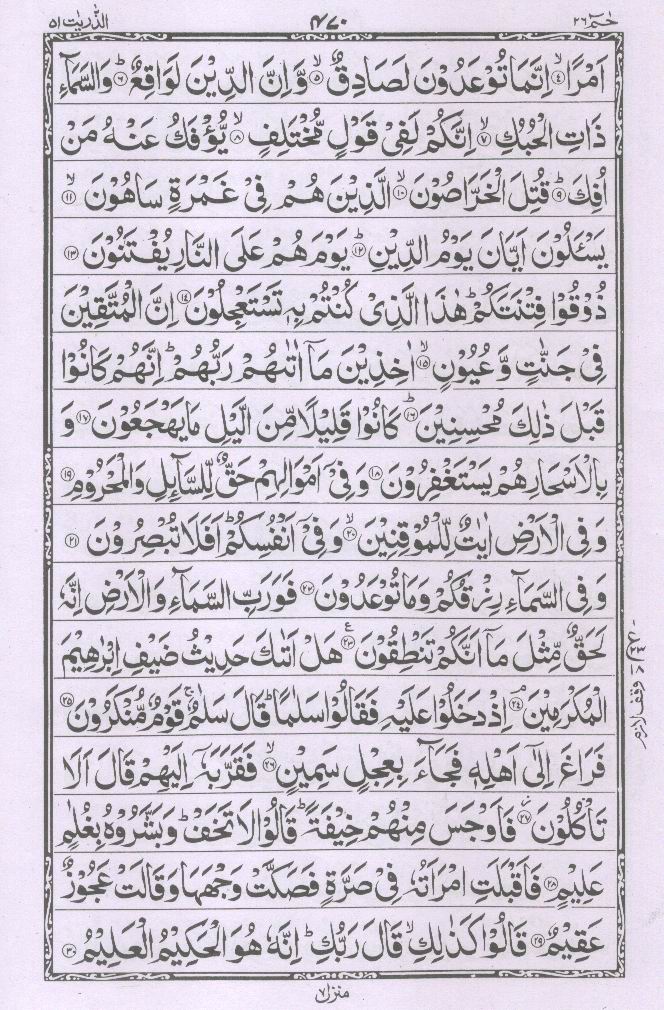 حٰمٓ ٢٦
٤٧٠
الذّٰريٰت ٥١
اَمۡرًا ۙ﴿٤﴾ اِنَّمَا تُوۡعَدُوۡنَ لَصَادِقٌ ۙ﴿٥﴾ وَّاِنَّ الدِّيۡنَ لَوَاقِعٌ ؕ﴿٦﴾ وَالسَّمَآءِ
ذَاتِ الۡحُبُكِ ۙ﴿٧﴾ اِنَّكُمۡ لَفِىۡ قَوۡلٍ مُّخۡتَلِفٍ ۙ﴿٨﴾ يُّؤۡفَكُ عَنۡهُ مَنۡ
اُفِكَ ؕ﴿٩﴾ قُتِلَ الۡخَرّٰصُوۡنَ ۙ﴿١٠﴾ الَّذِيۡنَ هُمۡ فِىۡ غَمۡرَةٍ سَاهُوۡنَ ۙ﴿١١﴾
يَسۡـَٔلُوۡنَ اَيَّانَ يَوۡمُ الدِّيۡنِ ؕ﴿١٢﴾ يَوۡمَ هُمۡ عَلَى النَّارِ يُفۡتَنُوۡنَ ﴿١٣﴾
ذُوۡقُوۡا فِتۡنَتَكُمۡ ؕ هٰذَا الَّذِىۡ كُنۡتُمۡ بِهٖ تَسۡتَعۡجِلُوۡنَ ﴿١٤﴾ اِنَّ الۡمُتَّقِيۡنَ
فِىۡ جَنّٰتٍ وَّعُيُوۡنٍ ۙ﴿١٥﴾ اٰخِذِيۡنَ مَاۤ اٰتٰٮهُمۡ رَبُّهُمۡ ؕ اِنَّهُمۡ كَانُوۡا
قَبۡلَ ذٰلِكَ مُحۡسِنِيۡنَ ؕ﴿١٦﴾ كَانُوۡا قَلِيۡلًا مِّنَ الَّيۡلِ مَا يَهۡجَعُوۡنَ ﴿١٧﴾ وَ
بِالۡاَسۡحَارِ هُمۡ يَسۡتَغۡفِرُوۡنَ ﴿١٨﴾ وَفِىۡۤ اَمۡوَالِهِمۡ حَقٌّ لِّلسَّآٮِٕلِ وَالۡمَحۡرُوۡمِ ﴿١٩﴾
وَفِى الۡاَرۡضِ اٰيٰتٌ لِّلۡمُوۡقِنِيۡنَ ۙ﴿٢٠﴾ وَفِىۡۤ اَنۡفُسِكُمۡ ؕ اَفَلَا تُبۡصِرُوۡنَ ﴿٢١﴾
وَفِى السَّمَآءِ رِزۡقُكُمۡ وَمَا تُوۡعَدُوۡنَ ﴿٢٢﴾ فَوَرَبِّ السَّمَآءِ وَالۡاَرۡضِ اِنَّهٗ
لَحَقٌّ مِّثۡلَ مَاۤ اَنَّكُمۡ تَنۡطِقُوۡنَ ﴿٢٣﴾ هَلۡ اَتٰٮكَ حَدِيۡثُ ضَيۡفِ اِبۡرٰهِيۡمَ
الۡمُكۡرَمِيۡنَ ۘ﴿٢٤﴾ اِذۡ دَخَلُوۡا عَلَيۡهِ فَقَالُوۡا سَلٰمًا ؕ قَالَ سَلٰمٌ ۚ قَوۡمٌ مُّنۡكَرُوۡنَ ﴿٢٥﴾
فَرَاغَ اِلٰٓى اَهۡلِهٖ فَجَآءَ بِعِجۡلٍ سَمِيۡنٍ ۙ﴿٢٦﴾ فَقَرَّبَهٗۤ اِلَيۡهِمۡ قَالَ اَلَا
تَاۡكُلُوۡنَ ﴿٢٧﴾ فَاَوۡجَسَ مِنۡهُمۡ خِيۡفَةً ؕ قَالُوۡا لَا تَخَفۡ ؕ وَبَشَّرُوۡهُ بِغُلٰمٍ
عَلِيۡمٍ ﴿٢٨﴾ فَاَقۡبَلَتِ امۡرَاَتُهٗ فِىۡ صَرَّةٍ فَصَكَّتۡ وَجۡهَهَا وَقَالَتۡ عَجُوۡزٌ
عَقِيۡمٌ ﴿٢٩﴾ قَالُوۡا كَذٰلِكِ ۙ قَالَ رَبُّكِ ؕ اِنَّهٗ هُوَ الۡحَكِيۡمُ الۡعَلِيۡمُ ﴿٣٠﴾
وقف لازم
منزل ٧